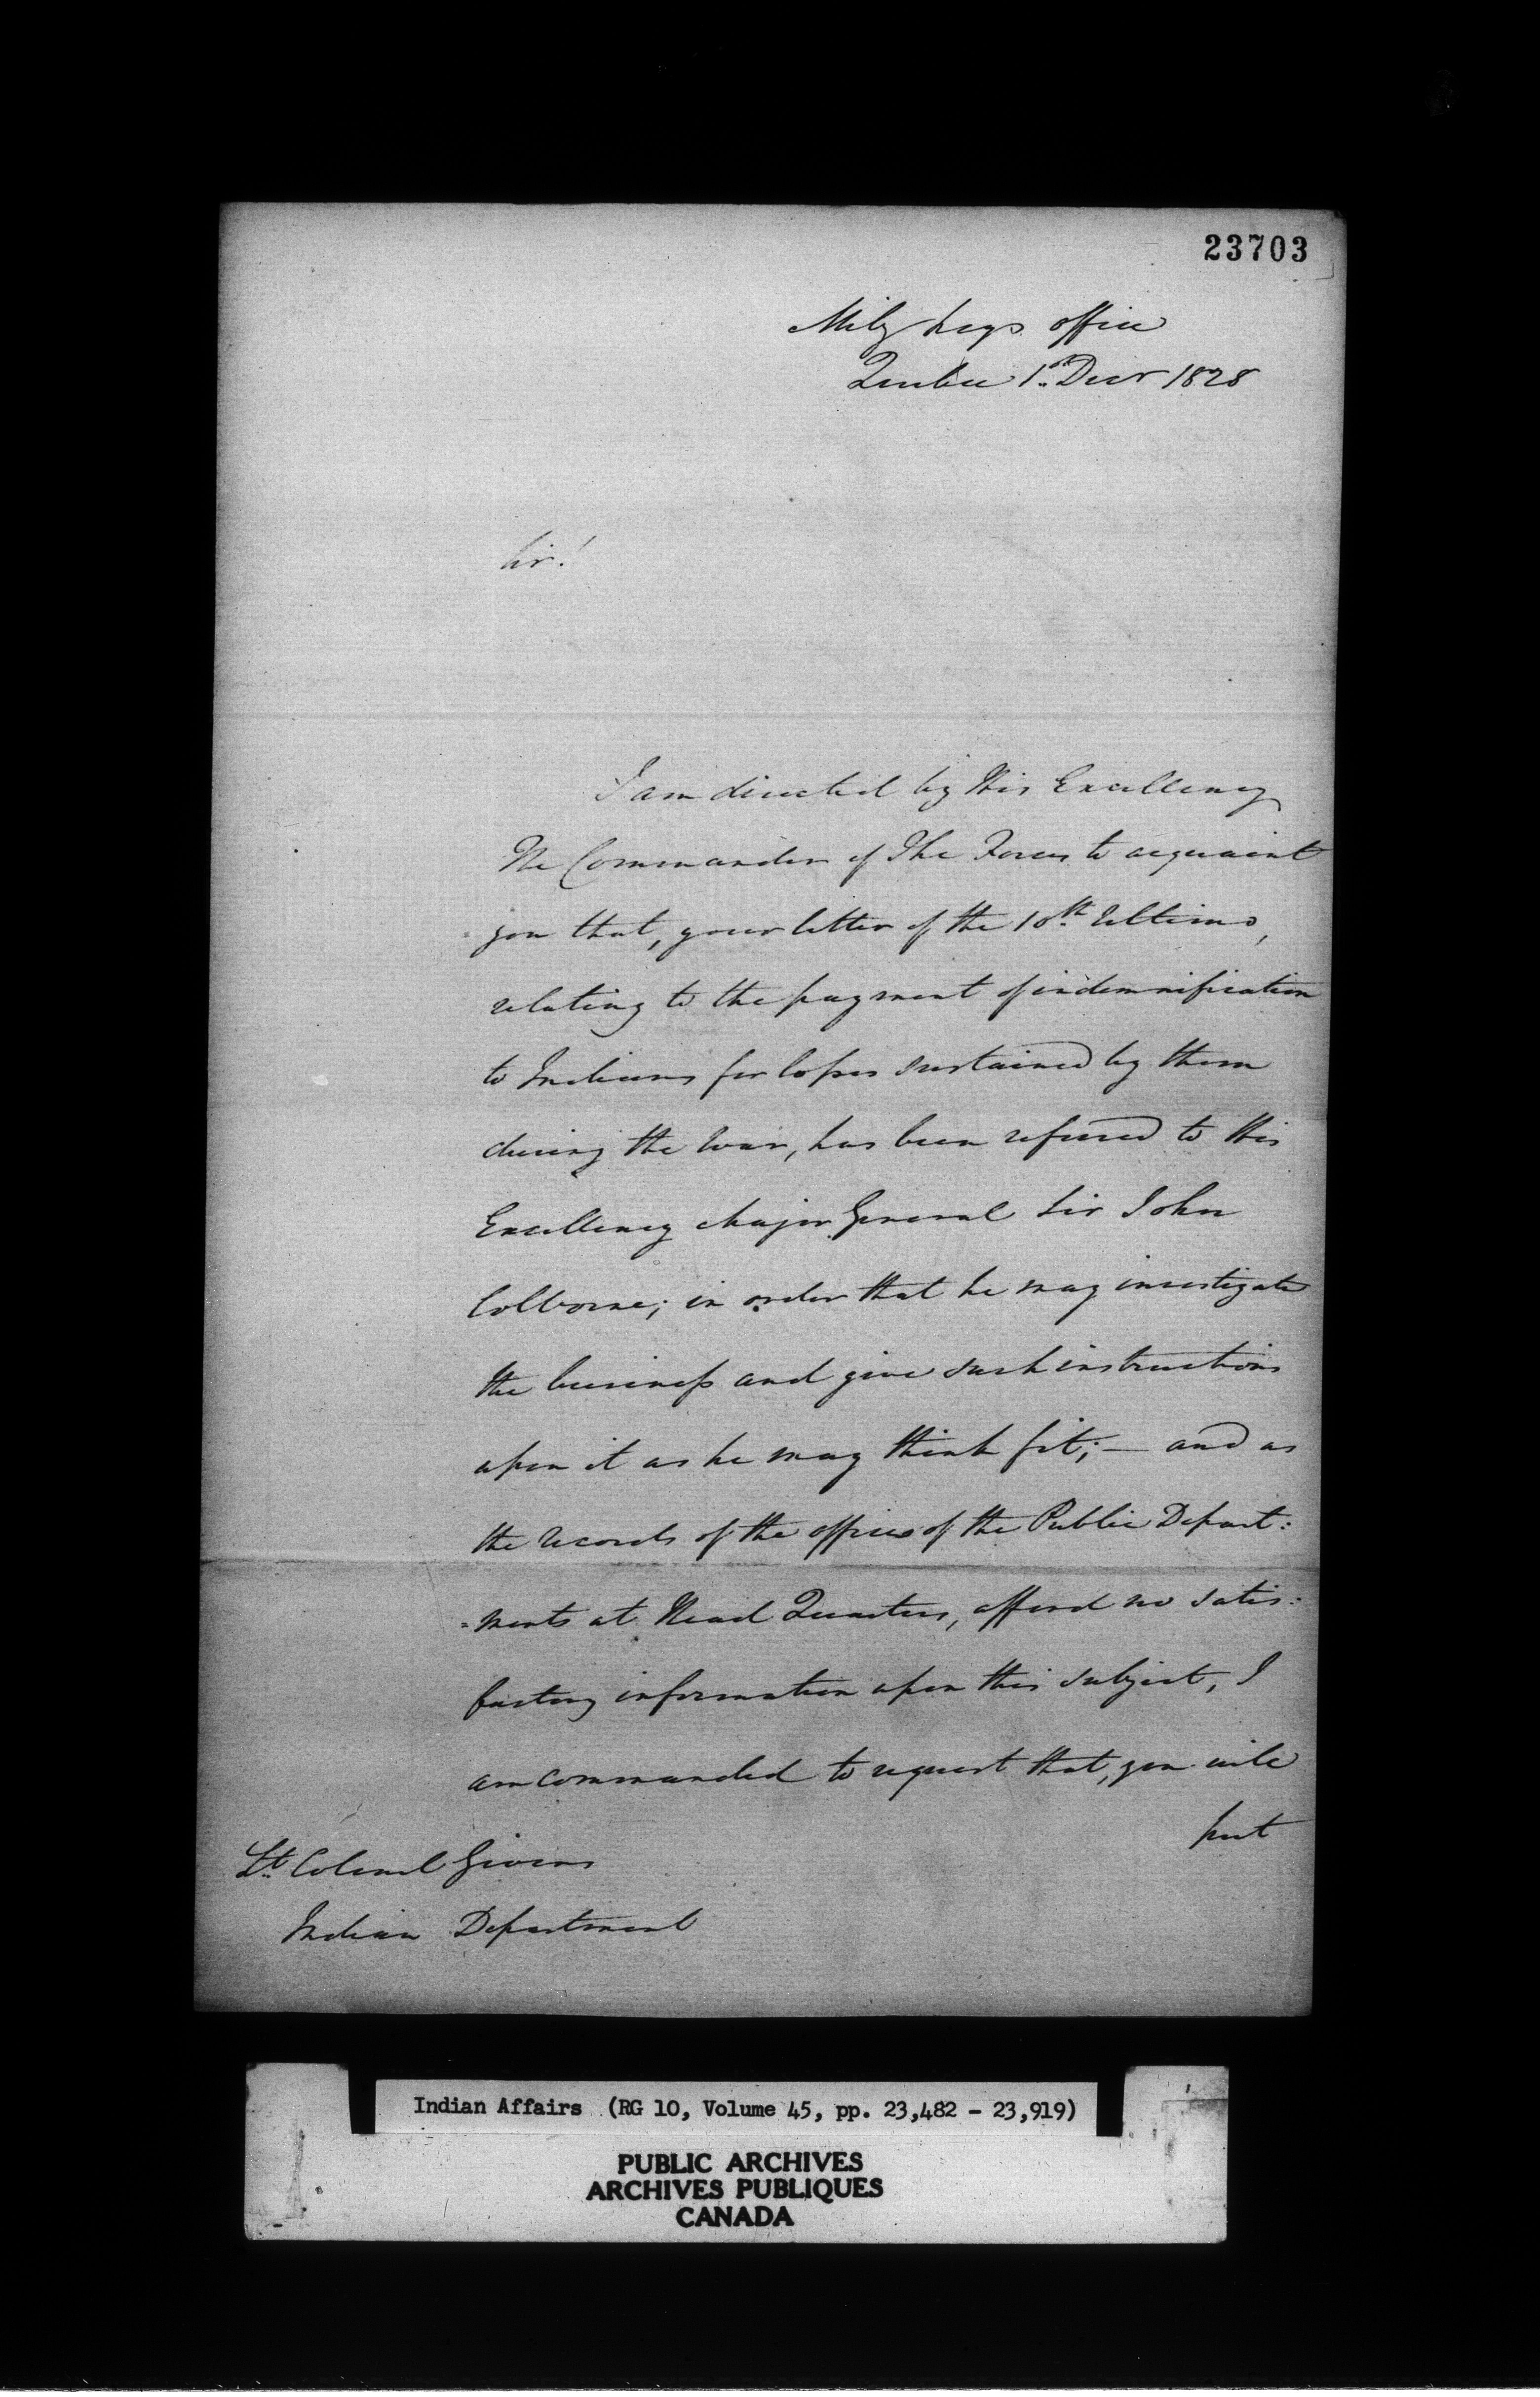 23703
Mily Secys office
Quebec 1st Decr 1828
Sir!
I am directed by His Excellency
The Commander of The Forces to acquaint
you that, your letter of the 10th Ultimo,
relating to the payment of indemnification
to Indians for losses sustained by them
during the War, has been referred to His
Excellency Major General Sir John
Colborne; in order that he may investigate
the business and give such instructions
upon it as he may think fit; — and as
the records of the offices of the Public Depart:
=ments at Head Quarters, afford no satis:
factory information upon this subject, I
am commanded to request that, you will
put
Lt Colonel Givins
Indian Department
Indian Affairs (RG 10, Volume 45, pp. 23,482 - 23,919)
PUBLIC ARCHIVES
ARCHIVES PUBLIQUES
CANADA